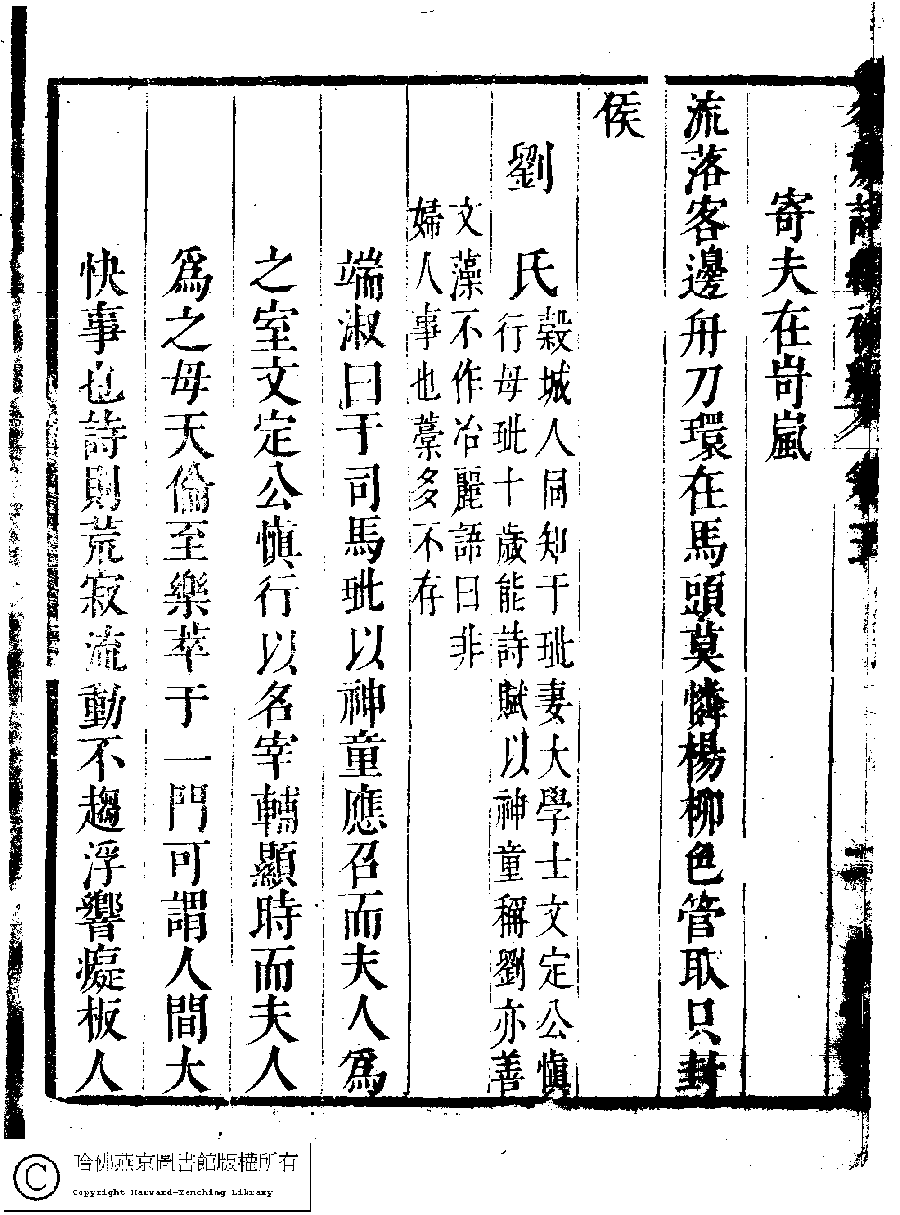 寄夫在岢嵐
流落客邊舟刀環在馬頭莫憐楊柳色管取只封
侯
劉氏
穀城人同知于玭妻大學士文定公慎
行母玭十歲能詩賦以神童稱劉亦善
文藻不作冶麗語曰非
婦人事也藁多不存
端淑曰于司馬玭以神童應召而夫人爲
之室文定公慎行以名宰輔顯時而夫人
爲之母天倫至樂萃于一門可謂人間大
快事也詩則荒寂流動不趨浮響癡板人
哈佛燕京圖書館版權所有
Copyright Harvard-Yenching Library